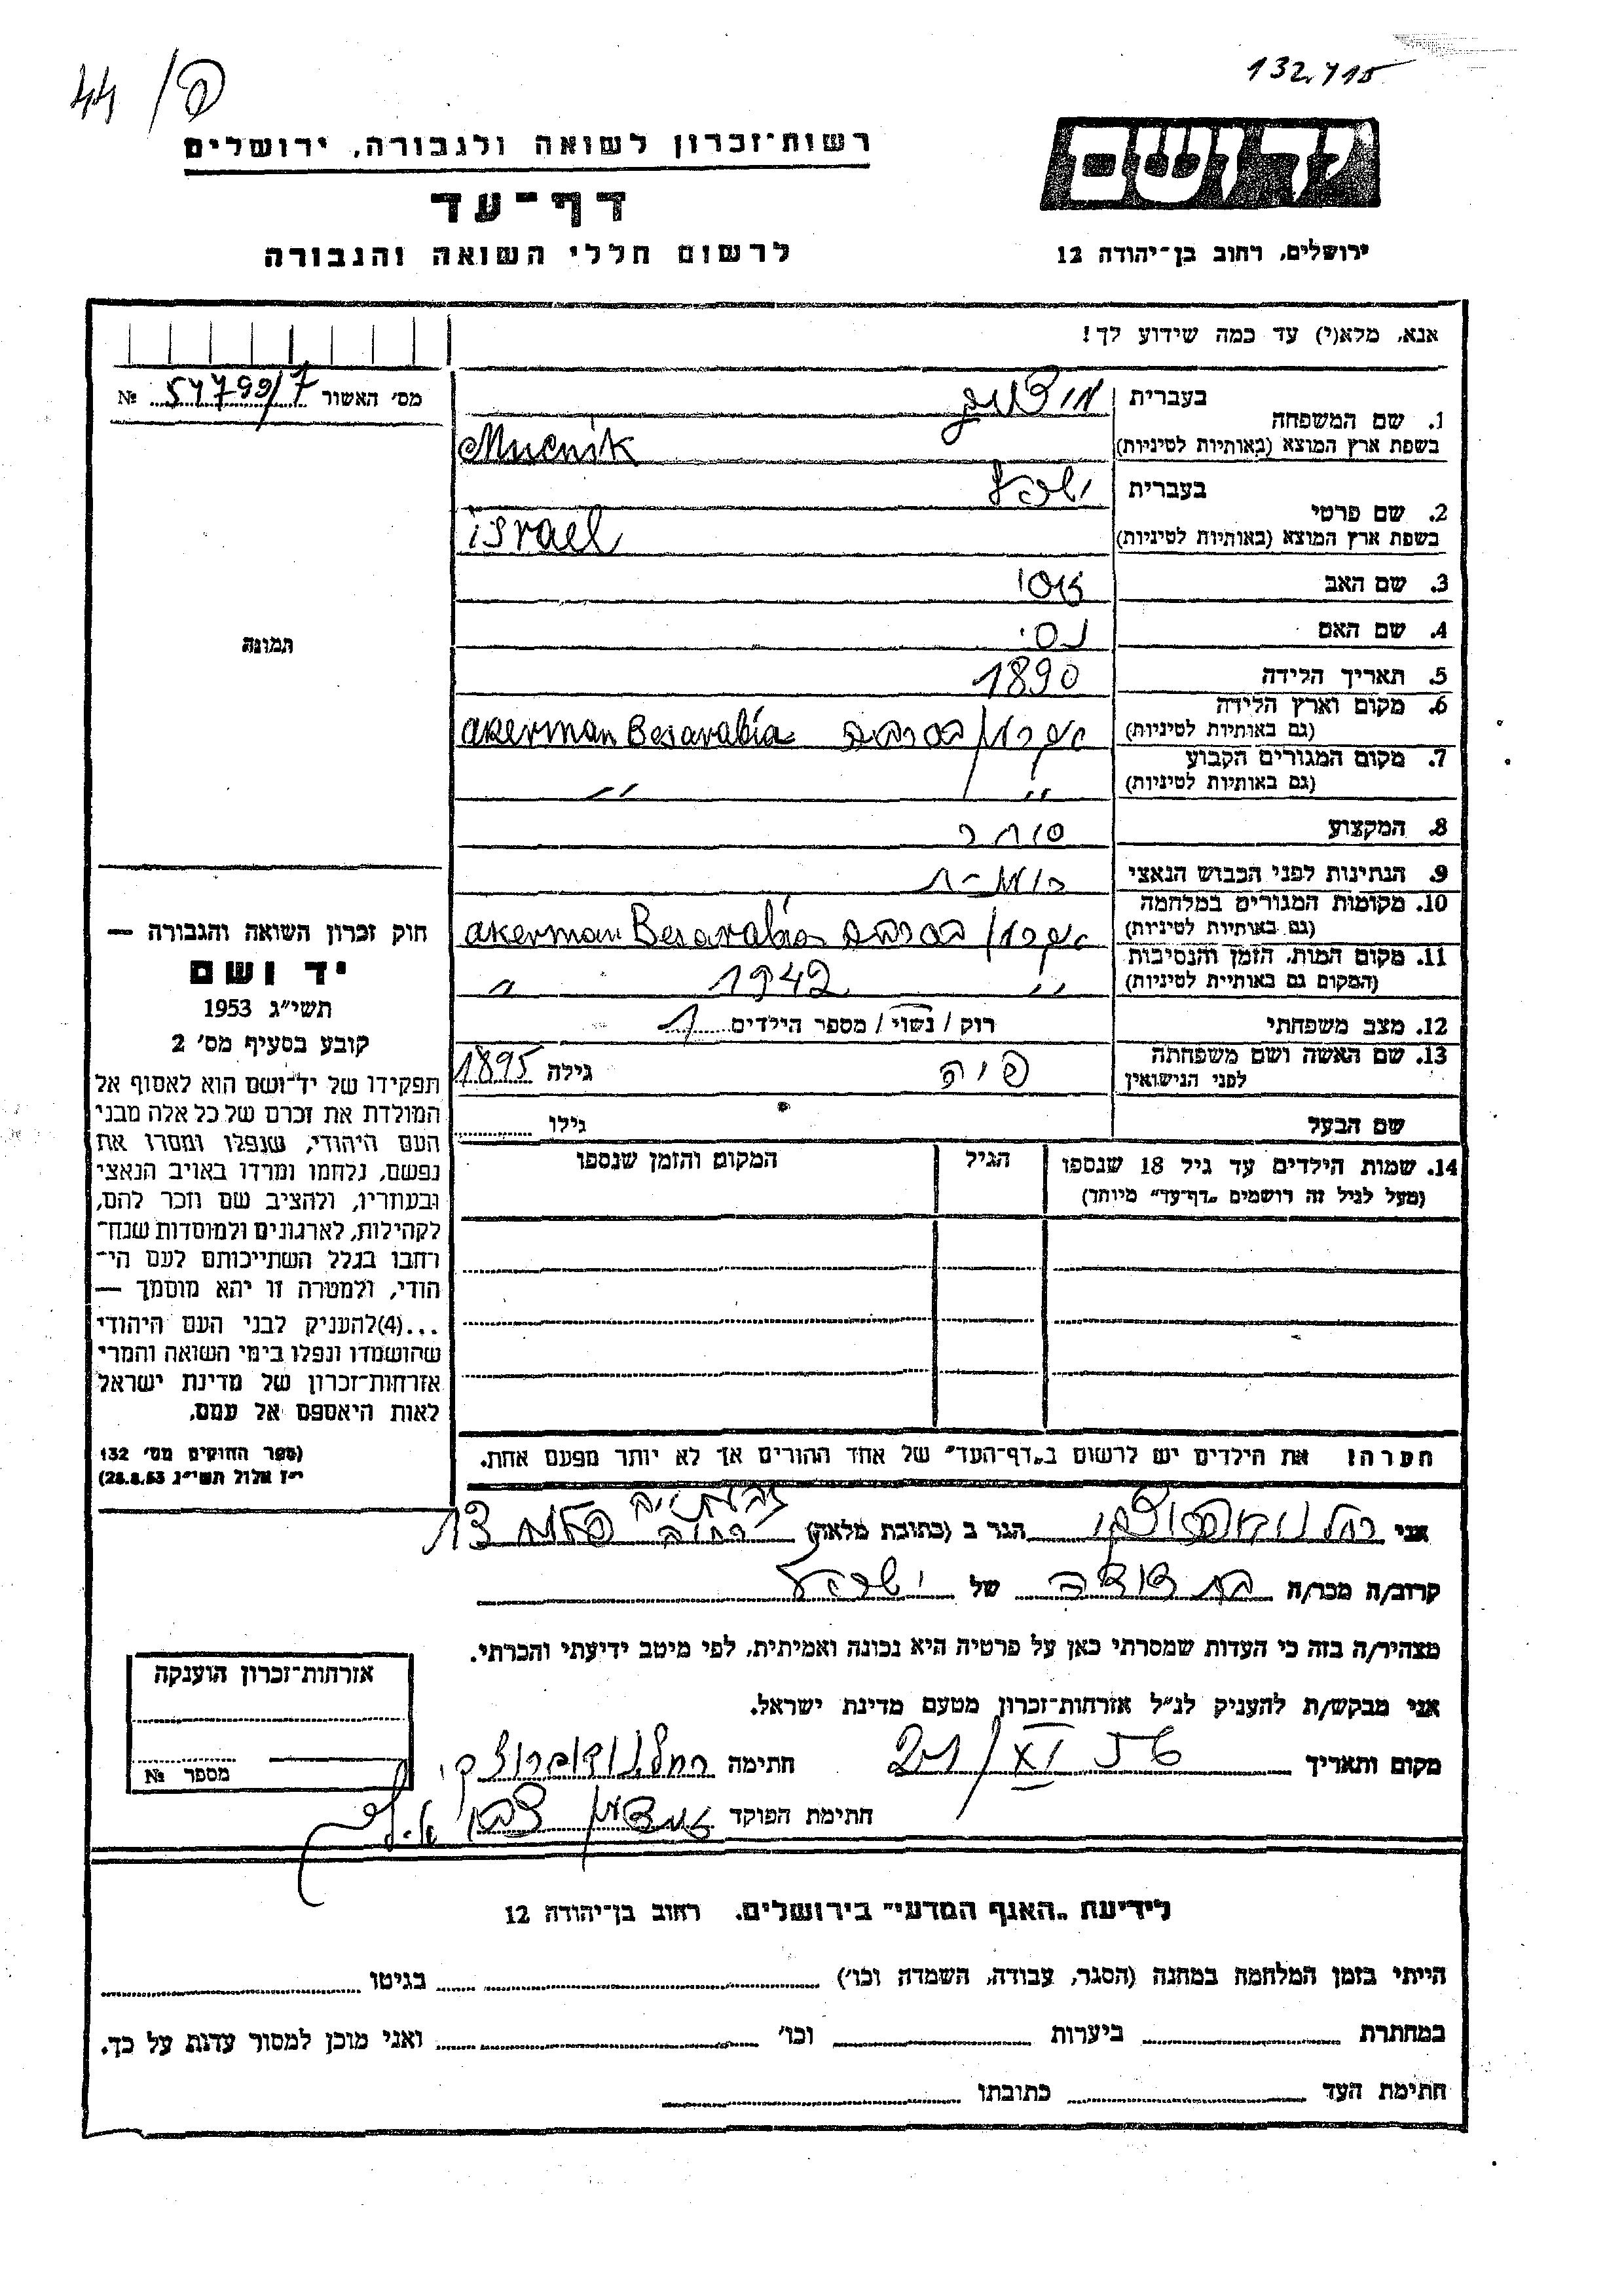 132.715
44/פ
רשות־זכרון לשואה ולגבורה, ירושלים
ידושם
דף־עד
לרשום חללי השואה והגבורה
ירושלים, רחוב בן־יהודה 12
אנא, מלא(י) עד כמה שידוע לך!
מס׳ האשור 54799/7 №
1. שם המשפחה
בעברית מוצניק
בשפת ארץ המוצא (באותיות לטיניות) Mucnik
2. שם פרטי
בעברית ישראל
בשפת ארץ המוצא (באותיות לטיניות) israel
3. שם האב יוסי
4. שם האם נסי
5. תאריך הלידה 1890
6. מקום וארץ הלידה
(גם באותיות לטיניות) אקרמן בסרביה akerman Besarabia
7. מקום המגורים הקבוע
(גם באותיות לטיניות) ״ ״
8. המקצוע סוחר
9. הנתינות לפני הכבוש הנאצי רומנית
10. מקומות המגורים במלחמה
(גם באותיות לטיניות) אקרמן בסרביה akerman Besarabia
11. מקום המות, הזמן והנסיבות
(המקום גם באותיית לטיניות) ״ 1942 ״
12. מצב משפחתי רוק / נשוי / מספר הילדים 1
13. שם האשה ושם משפחתה
לפני הנישואין גילה 1895
שם הבעל גילו
14. שמות הילדים עד גיל 18 שנספו הגיל המקום והזמן שנספו
(מעל לגיל זה רושמים „דף־עד״ מיוחד)
הערה! את הילדים יש לרשום ב„דף־העד״ של אחד ההורים אך לא יותר מפעם אחת.
תמונה
חוק זכרון השואה והגבורה —
יד ושם
תשי״ג 1953
קובע בסעיף מס׳ 2
תפקידו של יד־ושם הוא לאסוף אל
המולדת את זכרם של כל אלה מבני
העם היהודי, שנפלו ומסרו את
נפשם, נלחמו ומרדו באויב הנאצי
ובעוזריו, ולהציב שם וזכר להם,
לקהילות, לארגונים ולמוסדות שנח־
רחבו בגלל השתייכותם לעם הי־
הודי, ולמטרה זו יהא מוסמך —
...(4)להעניק לבני העם היהודי
שהושמדו ונפלו בימי השואה והמרי
אזרחות־זכרון של מדינת ישראל
לאות היאספם אל עמם.
(ספר החוקים מס׳ 132
י״ז אלול תשי״ג 28.8.53)
אני רחל הגר ב (כתובת מלאה) רחוב 13
קרוב/ה מכר/ה של ישראל
מצהיר/ה בזה כי העדות שמסרתי כאן על פרטיה היא נכונה ואמיתית, לפי מיטב ידיעתי והכרתי.
אני מבקש/ת להעניק לנ״ל אזרחות־זכרון מטעם מדינת ישראל.
מקום ותאריך 21/XI 56 חתימה רחל
חתימת הפוקד
אזרחות־זכרון הוענקה
מספר №
לידיעת „האגף המדעי״ בירושלים. רחוב בן־יהודה 12
הייתי בזמן המלחמה במחנה (הסגר, עבודה, השמדה וכו׳) בגיטו
במחתרת ביערות וכו׳ ואני מוכן למסור עדות על כך.
חתימת העד כתובתו